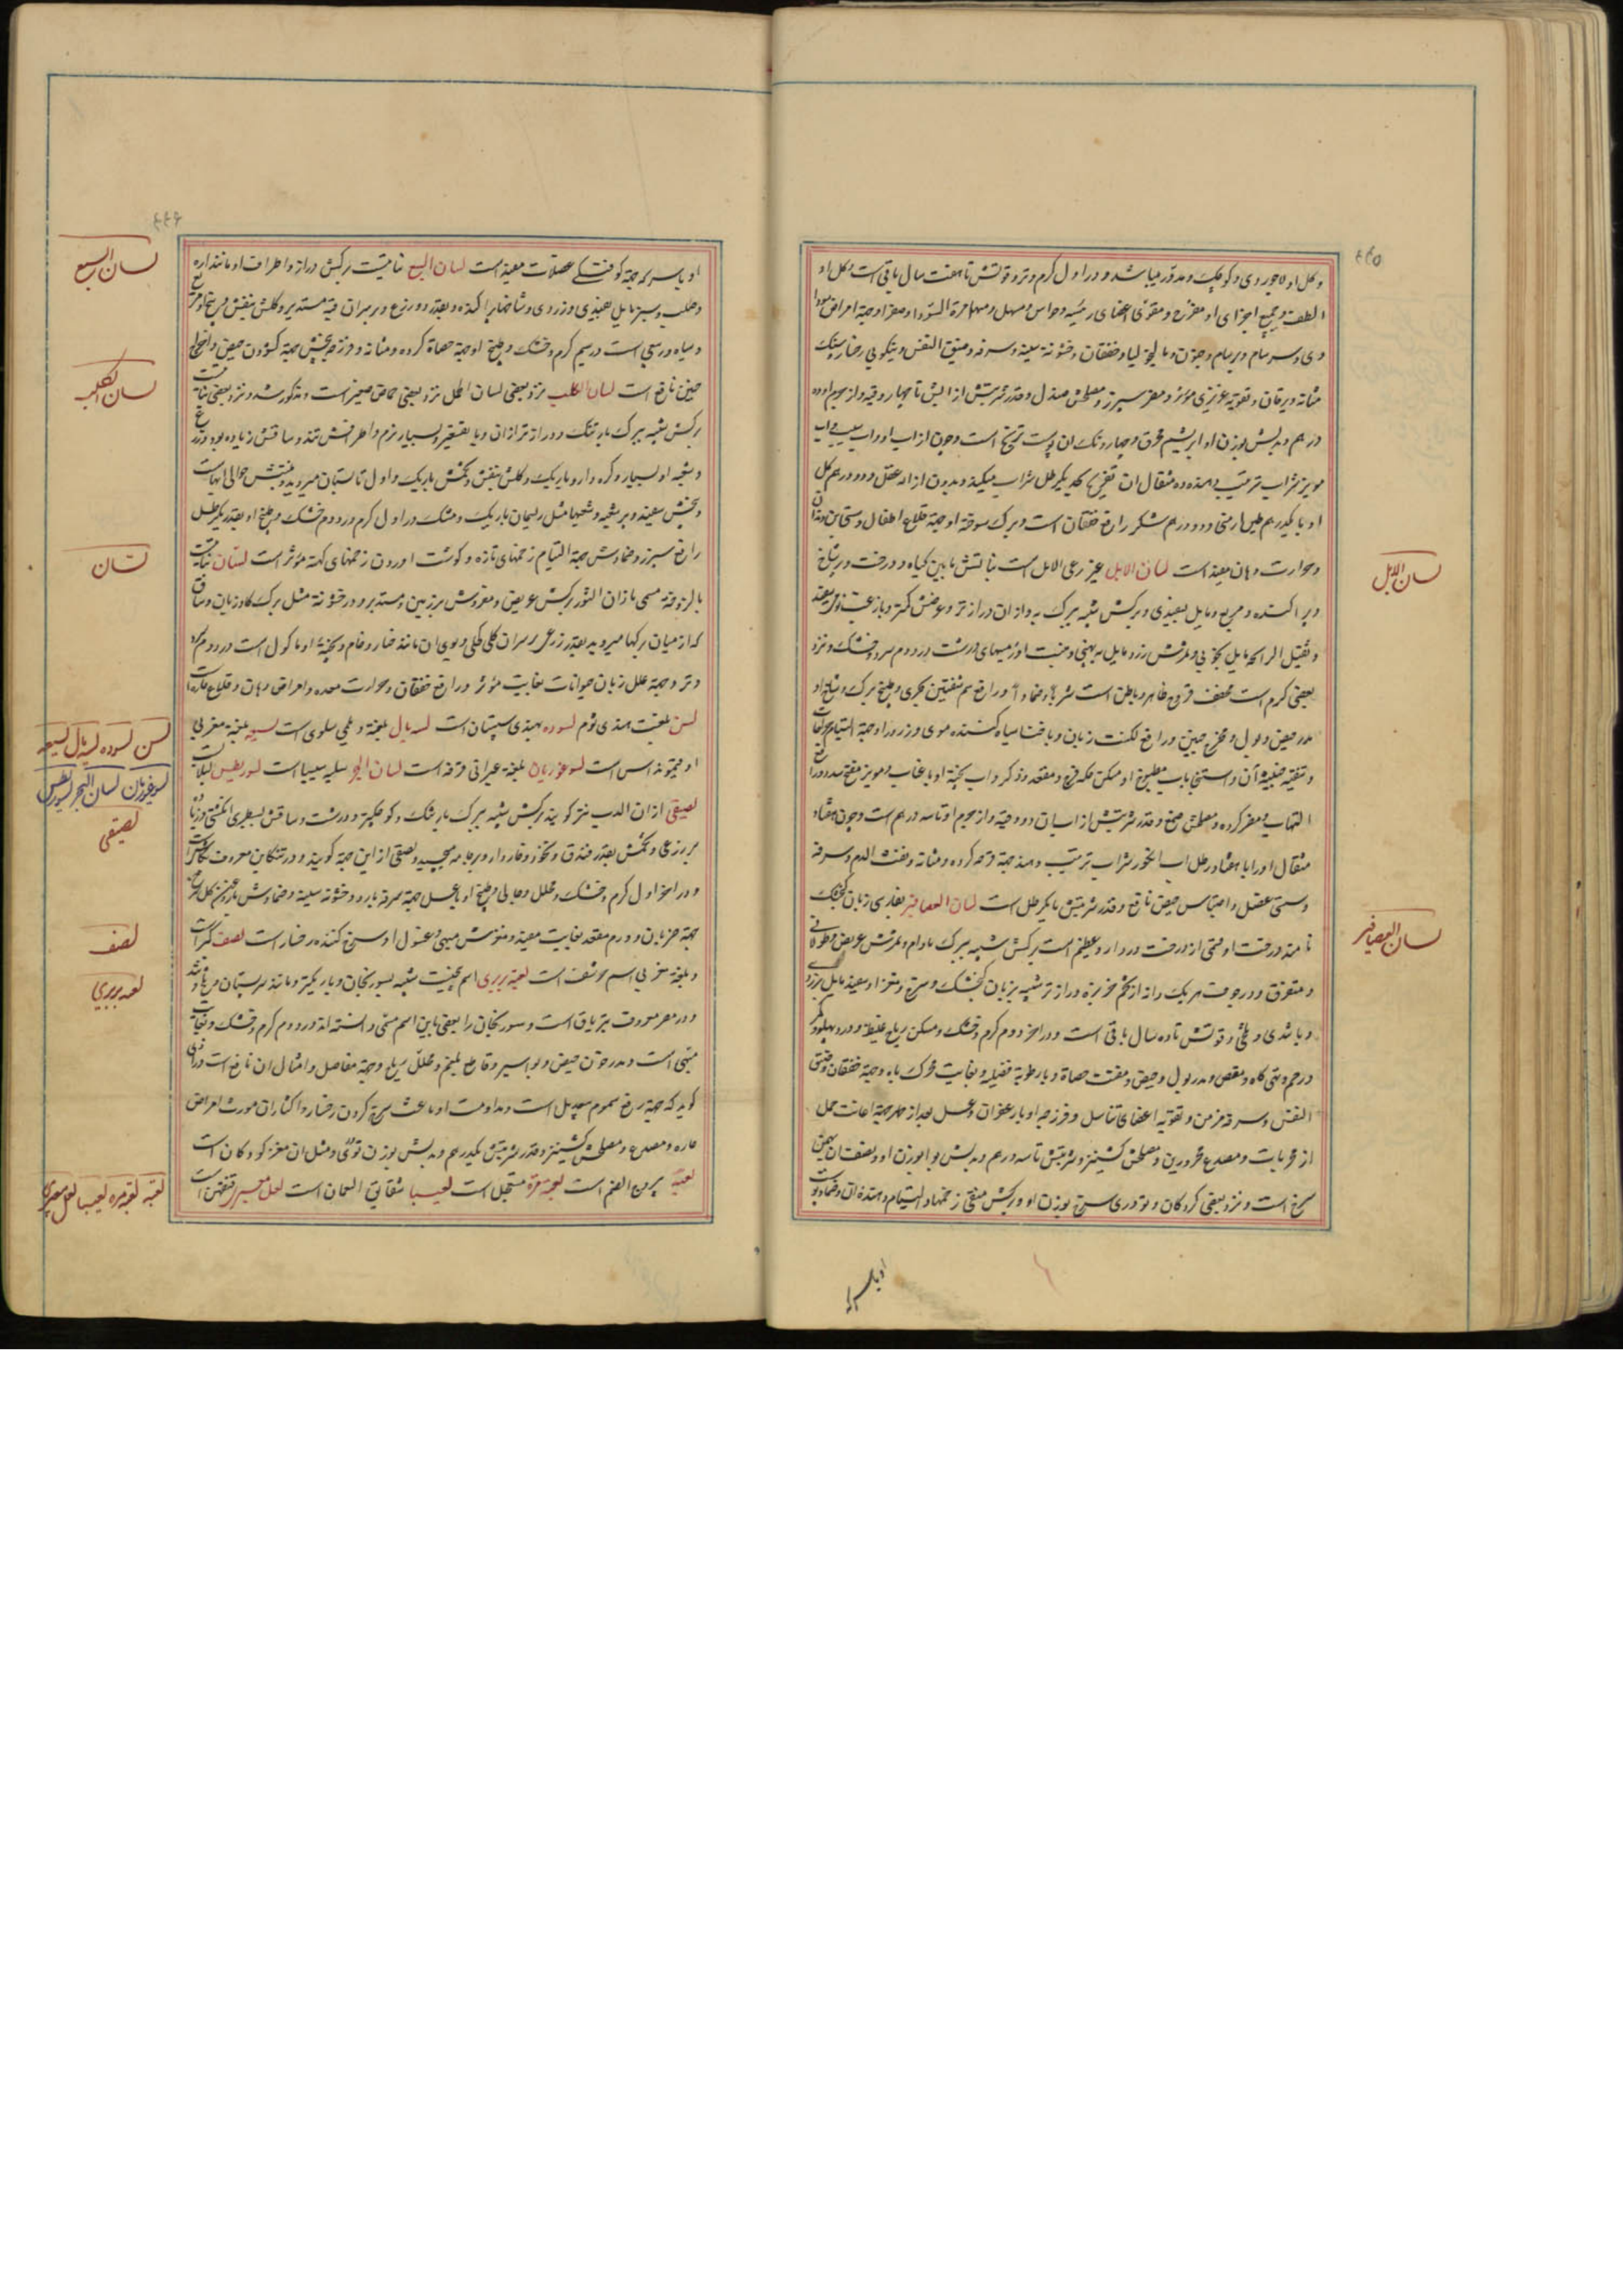 و کل او لاجوردی و کوچک و مدور میباشد و در اول گرم و تر و قوتش تا هفت سال باقی است و کل او
الطف و جمیع اجزای او مفرح و مقوی اعضای رئیسه و حواس و مسهل و مهما مرة السودا و صفرا و جهة امراض سودا
وی و سرسام و برسام و جنون و مالیخولیا و خفقان و خشونة سینه و سرفه و ضیق النفس و نیکویی رخسار و سنک
مثانه و یرقان و تقویة غریزی مؤثر و مضر سپرز و مصلحش صندل و قدر شربتش از آبش تا چهار وقیه و از جرم او ده
درهم و بدلش بوزن او ابریشم محرق و چهار دنک ان پوست ترنج است و چون از اب او و اب سیب و اب
مویز شراب ترتیب دهند ده مثقال ان تفریح بحد یکرطل شراب میکند و بدون ازاله عقل و دو درهم کل
او با یکدرهم طین ارمنی و دو درهم شکر رافع خفقان است و برک سوخته او جهة قلاع اطفال
و حرارت دهان مفید است لسان الابل غیر رعی الابل است نباتش مابین گیاه و درخت و پرشاخ
و پراکنده و مربع و مایل بسفیدی و برکش شبیه ببرک به و از ان درازتر و عرضش کمتر
و ثقیل الرایحه مایل بخوبی و ثمرش زرد مایل به پهنی و منبت او زمینهای درشت در دوم سرد و خشک و نزد
بعضی گرم است مجفف قروح ظاهر و باطن است شربا و ضمادا و رافع سم شفنین بحری و طبخ برک و شاخ او
مدر حیض و بول و مخرج جنین و رافع لکنت زبان و با حنا سیاه کننده موی و زرور او جهة التیام جراحات
و تنقیه خبیثه ان و استنجا باب مطبوخ او مسکن حکه فرج و مقعد و ذکر و اب پخته او با عناب و مویز
التهاب و مضر کرده و مصلحش صمغ و قدر شربتش از اب ان دو وقیه و از جرم او تا سه درهم است و چون هفتاد
مثقال او را با هشتاد رطل اب انگور شراب ترتیب دهند جهة قرحه کرده و مثانه و نفث الدم و سرفه
و سستی عضل و احتباس حیض نافع و قدر شربتش تا یکرطل است لسان العصافیر بفارسی زبان گنجشک
نامند درخت او قسمی از درخت دردار و عظیم است برکش شبیه ببرک بادام و ثمرش عریض و طولانی
و متفرق و در جوف هر یک دانه از تخم خربزه درازتر شبیه بزبان گنجشک و سرخ و مغز او سفید مایل بزردی
و با تندی و تلخی و قوتش تا ده سال باقی است و در اخر دوم گرم و خشک و مسکن ریاح غلیظه و درد پهلو و کمر
و رحم و تهی کاه و مغص و مدر بول و حیض و مفتت حصاة و با رطوبة فضلیه و بغایت محرک باه و جهة خفقان و ضیق
النفس و سرفه مزمن و تقویه اعضای تناسل و فرزجه او با زعفران و عسل بعد از طهر جهة اعانت حمل
از مجربات و مصدع محرورین و مصلحش کشنیز و شربتش تا سه درهم و بدلش بوا بوزن او و نصف ان بهمن
سرخ است و نزد بعضی کردکان و تودری سرخ بوزن او و برکش منقی زخمها و التیام دهنده ان
لسان الابل
لسان العصافیر
او با سرکه جهة کوفتگی عضلات مفید است لسان السبع نباتیست برکش دراز و اطراف او مانند اره
و صلب و سبز مایل بسفیدی و زردی و شاخها پراکنده و بقدر دو زرع و بر سر ان قبه مستدیر و کلش بنفش
و سیاه و ربیعی است در سیم گرم و خشک و طبخ او جهة حصاة کرده و مثانه و فرزجه بیخش جهة کشودن حیض و اخراج
جنین نافع است لسان الکلب نزد بعضی لسان الحمل نزد بعضی حماض صغیر است و مذکور شد و نزد بعضی نباتیست
برکش شبیه ببرک بارتنک و درازتر از ان و با تقعیر و بسیار نرم و اطرافش تند و ساقش زیاده بر دو زرع
و شعبه او بسیار و کره دار و باریک و کلش بنفش و تخمش باریک و اول تابستان میروید و منبتش حوالی ابهاست
و بیخش سفید و پر شعبه و شعبها مثل ریسمان باریک و خشک در اول گرم و در دوم خشک و طبخ او بقدر یکرطل
رافع سپرز و ضمادش جهة التیام زخمهای تازه و گوشت اوردن زخمهای کهنه مؤثر است لسان نباتیست
بالزوقه مسمی باذان الثور برکش عریض و مفروش بر زمین و مستدیر و در خشونة مثل برک کاوزبان و ساق
که از میان برکها میروید بقدر زرعی بر سر ان کلی کحلی و بوی ان مانند خیار و خام و پخته او ماکول است در دوم سرد
و تر و جهة علل زبان حیوانات بغایت مؤثر و رافع خفقان و حرارت معده و امراض دهان و قلاع حاره است
لسن بلغت هندی ثوم لسوده بهندی سپستان است لسه یال بلغة دیلمی سلوی است لسیعه بلغة مغربی
لسوغوریان بلغة عبرانی قرفه است لسان البحر سلیه سیبیا است لسوریطس لبلاب
لصیقی از ان الدب نیز کویند برکش شبیه ببرک بارتنک و کوچکتر و درشت و ساقش بسطبری انکشتی
بر زرعی و تخمش بقدر فندق و نخود و خاردار و بر جامه میچسپد و لصقی از این جهة کویند و در تنکابن معروف
و در اخر اول گرم و خشک و محلل و جالی و طبخ او با عسل جهة سرفه بارد و خشونة سینه و ضمادش با روغن کل سرخ
جهة ضربان و ورم مقعد بغایت مفید و منوش مبهی و غسول او سرخ کننده رخسار است لصف کبر است
و بلغة مغربی اسم حرشف است لعبه بربری اسم بیخیست شبیه بسورنجان و باریکتر و مانند سر پستان
و در مصر معروف بتریاق است و سورنجان را بعضی باین اسم مسمی دانسته اند در دوم گرم و خشک و بغایت
مبهی است و مدر خون حیض و بواسیر و قاطع بلغم و محلل ریاح و جهة مفاصل و امثال ان نافع است
کوید که جهة رفع سموم بیعدیل است و مداومت او باعث سرخ کردن رخسار و اکثار ان مورث امراض
حاره و مصدع و مصلحش کشنیز و قدر شربتش یکدرهم و بدلش بوزن تودری و مثل ان مغز کردکان است
لعبه یبروح الصنم است لعبه مره مستعجل است لعیبا شقایق النعمان است لعل
لسان السبع
لسان الکلب
لسان
لسن لسوده لسه یال لسیعه
لسوغوریان لسان البحر لسوریطس
لصیقی
لصف
لعبه بربری
لعبه لعبه مره لعیبا لعل